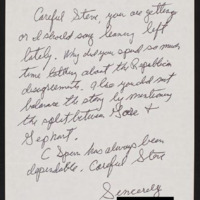 Careful Steve, you are getting
or I should say leaning left
lately. Why did you spend so much
time talking about the Republican
disagreements. Also you did not
balance the story by mentioning
the split between Gore &
Gephart.
C Span has always been
dependable. Careful Steve
Sincerely